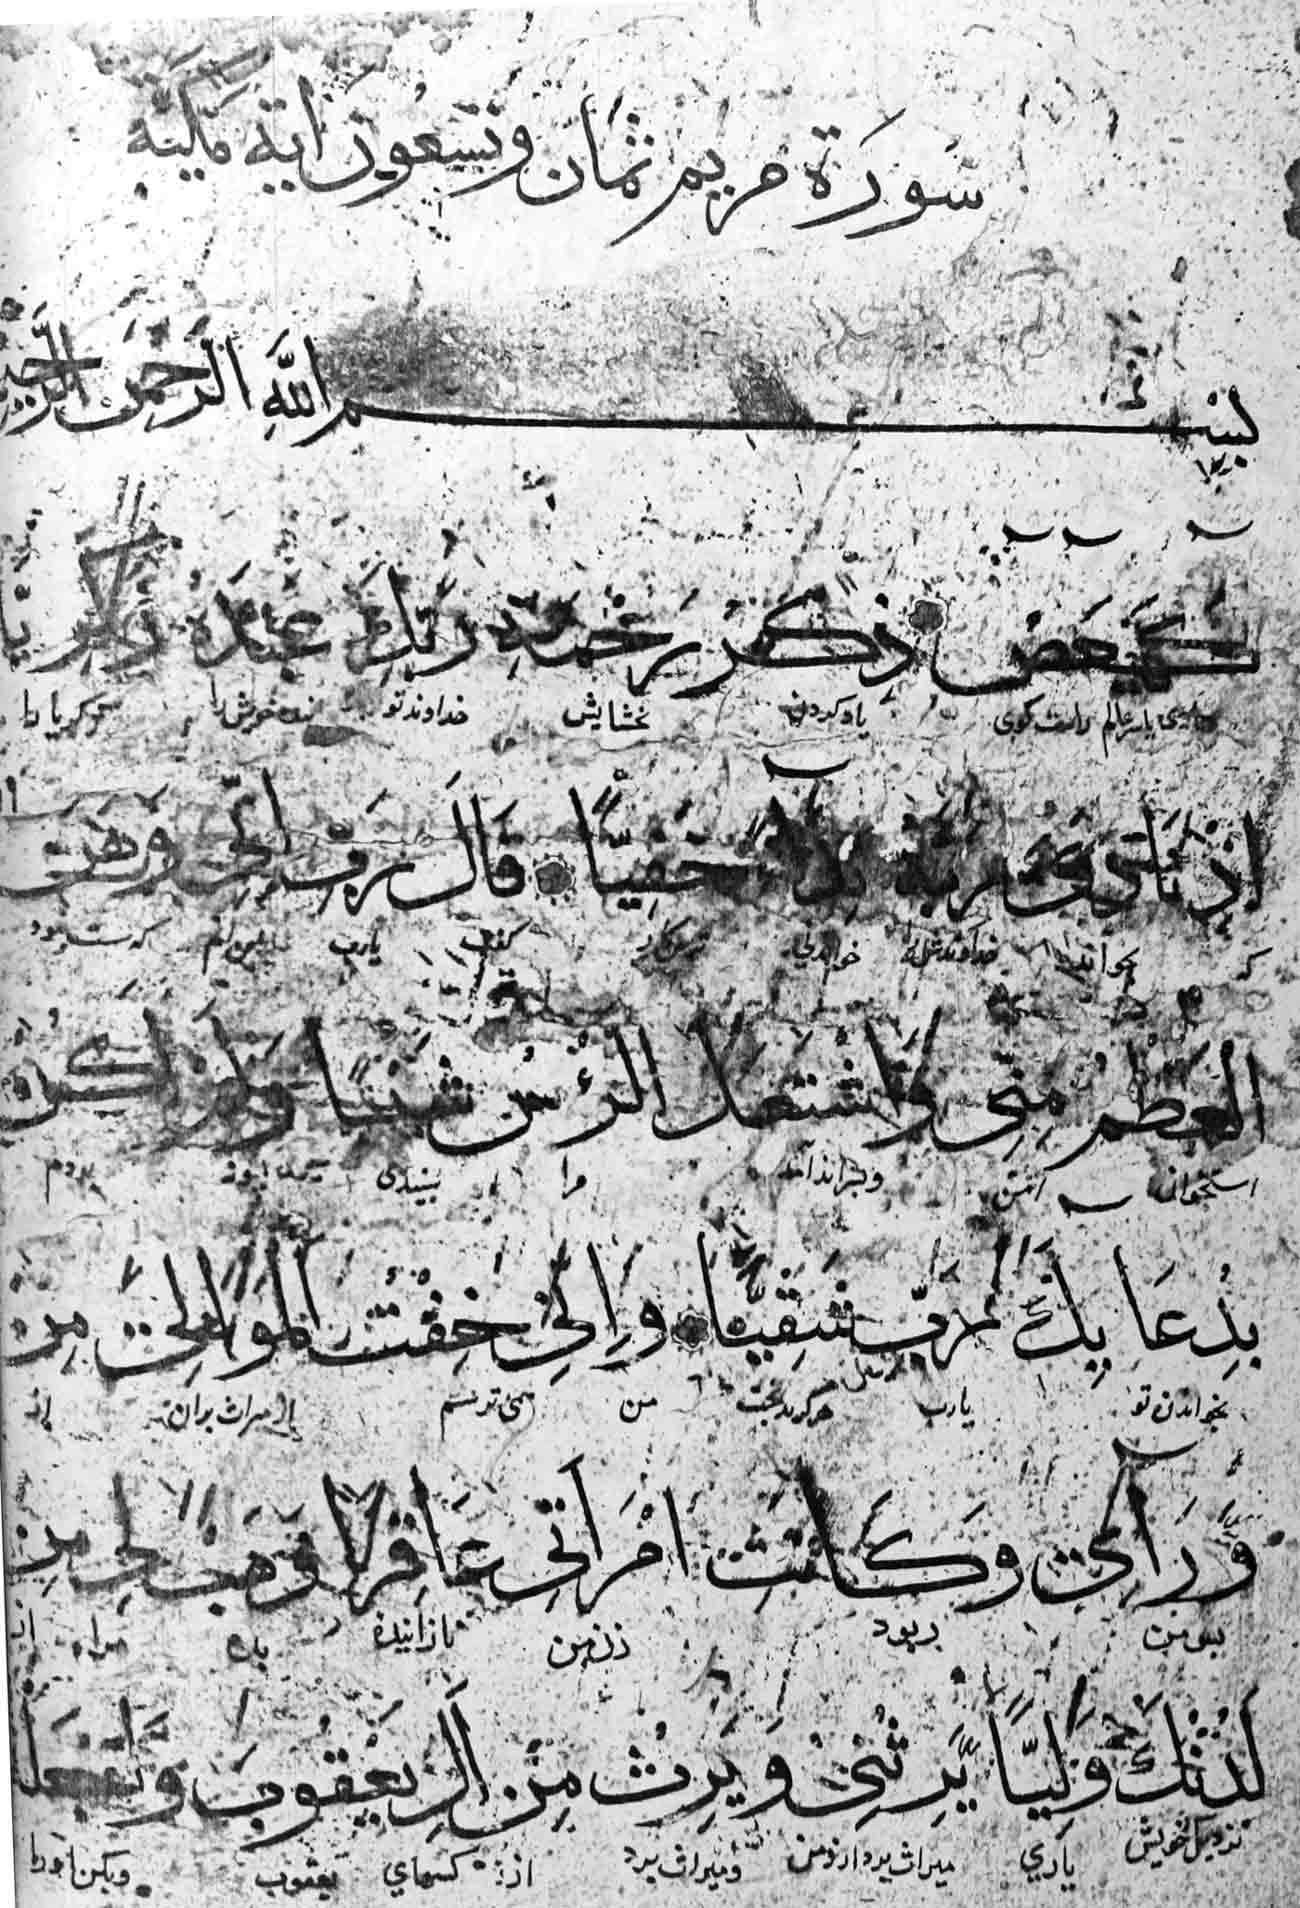 سورة مريم ثمان وتسعون آية مكية
بسم الله الرحمن الرحيم
كهيعص ذكر رحمة ربك عبده زكريا
ياد کردن بخشایش خداوند تو بنده خویش را زکریا را
إذ نادى ربه نداء خفيا قال رب إني وهن
که بخواند خداوند خواندنی گفت یارب
العظم مني واشتعل الرأس شيبا ولم أكن
استخوان از من مرا نبودم
بدعائك رب شقيا وإني خفت الموالي من
بخواندن تو یارب من می ترسم از میراث بران از
ورائي وكانت امرأتي عاقرا فهب لي من
پس من و بود زن من نازاینده بده مرا از
لدنك وليا يرثني ويرث من آل يعقوب واجعله
نزدیک خویش یاری میراث برد از من و میراث برد از کسهای یعقوب و بکن او را